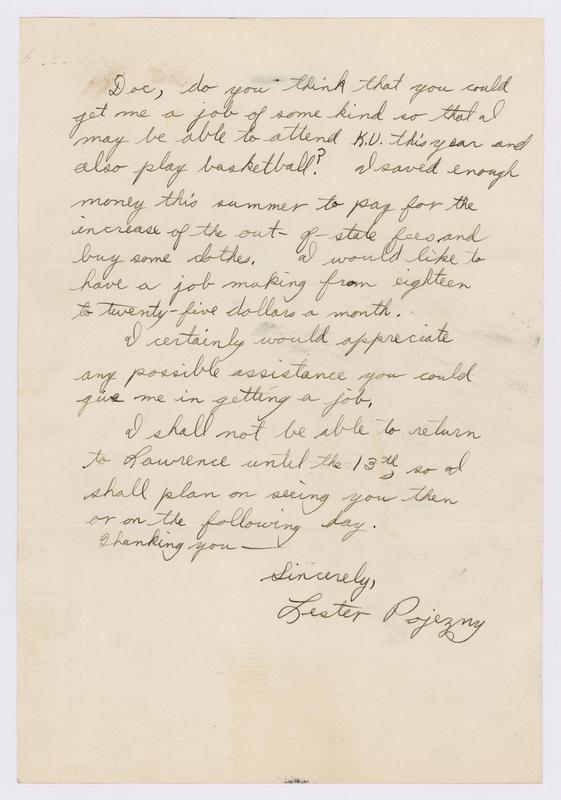 Doc, do you think that you could
get me a job of some kind so that I
may be able to attend K.U. this year and
also play basketball? I saved enough
money this summer to pay for the
increase of the out-of-state fees and
buy some clothes. I would like to
have a job making from eighteen
to twenty-five dollars a month.
I certainly would appreciate
any possible assistance you could
give me in getting a job.
I shall not be able to return
to Lawrence until the 13th, so I
shall plan on seeing you then
or on the following day.
Thanking you —
Sincerely,
Lester Pojezny